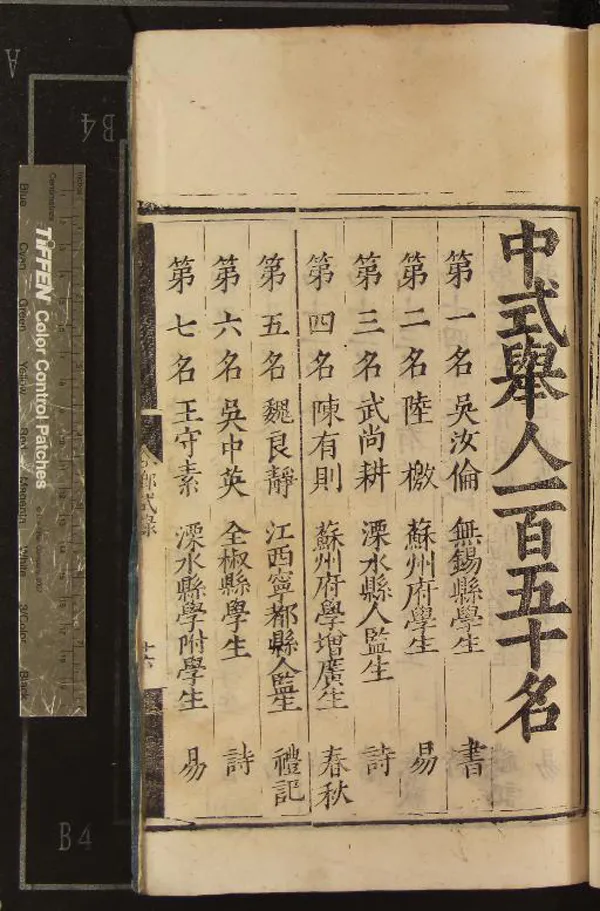 中式舉人一百五十名
第一名吳汝倫 無錫縣學生 書
第二名陸檄 蘇州府學生 易
第三名武尚耕 溧水縣人監生 詩
第四名陳有則 蘇州府學增廣生 春秋
第五名魏良靜 江西寧都縣人監生 禮記
第六名吳中英 全椒縣學生 詩
第七名王守素 溧水縣學附學生 易
鄉試錄
TIFFEN Color Control Patches
Centimetres
Inches
Blue
Cyan
Green
Yellow
Red
Magenta
White
3/Color
Black
A
B4
B4